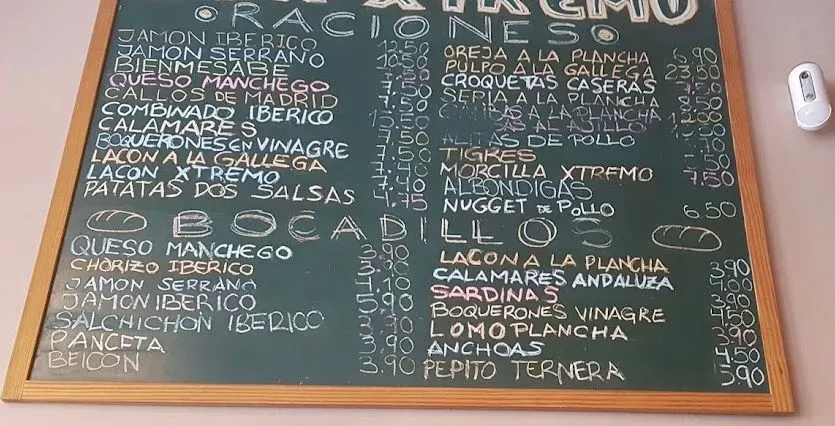 XTREMO
RACIONES
JAMON IBERICO 12.50
JAMON SERRANO 10.50
BIENMESABE
QUESO MANCHEGO 7.50
CALLOS DE MADRID 7.50
COMBINADO IBERICO
CALAMARES 7.50
BOQUERONES EN VINAGRE 7.50
LACON A LA GALLEGA
LACON XTREMO
PATATAS DOS SALSAS 4.75
OREJA A LA PLANCHA 6.90
PULPO A LA GALLEGA 23.50
CROQUETAS CASERAS 7.50
SEPIA A LA PLANCHA 8.50
A LA PLANCHA 12.00
AL AJILLO
ALITAS DE POLLO
TIGRES
MORCILLA XTREMO 7.50
ALBONDIGAS
NUGGET DE POLLO 6.50
BOCADILLOS
QUESO MANCHEGO 3.90
CHORIZO IBERICO 3.90
JAMON SERRANO 4.10
JAMON IBERICO 5.90
SALCHICHON IBERICO 3.90
PANCETA 3.90
BEICON 3.90
LACON A LA PLANCHA 3.90
CALAMARES ANDALUZA 4.00
SARDINAS 3.90
BOQUERONES VINAGRE 4.50
LOMO PLANCHA 3.90
ANCHOAS 4.50
PEPITO TERNERA 5.90